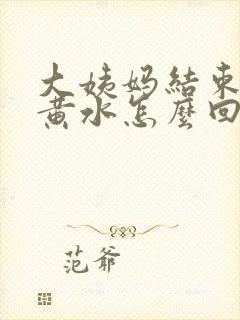 大姨妈結束
黄水怎麼回
范爷